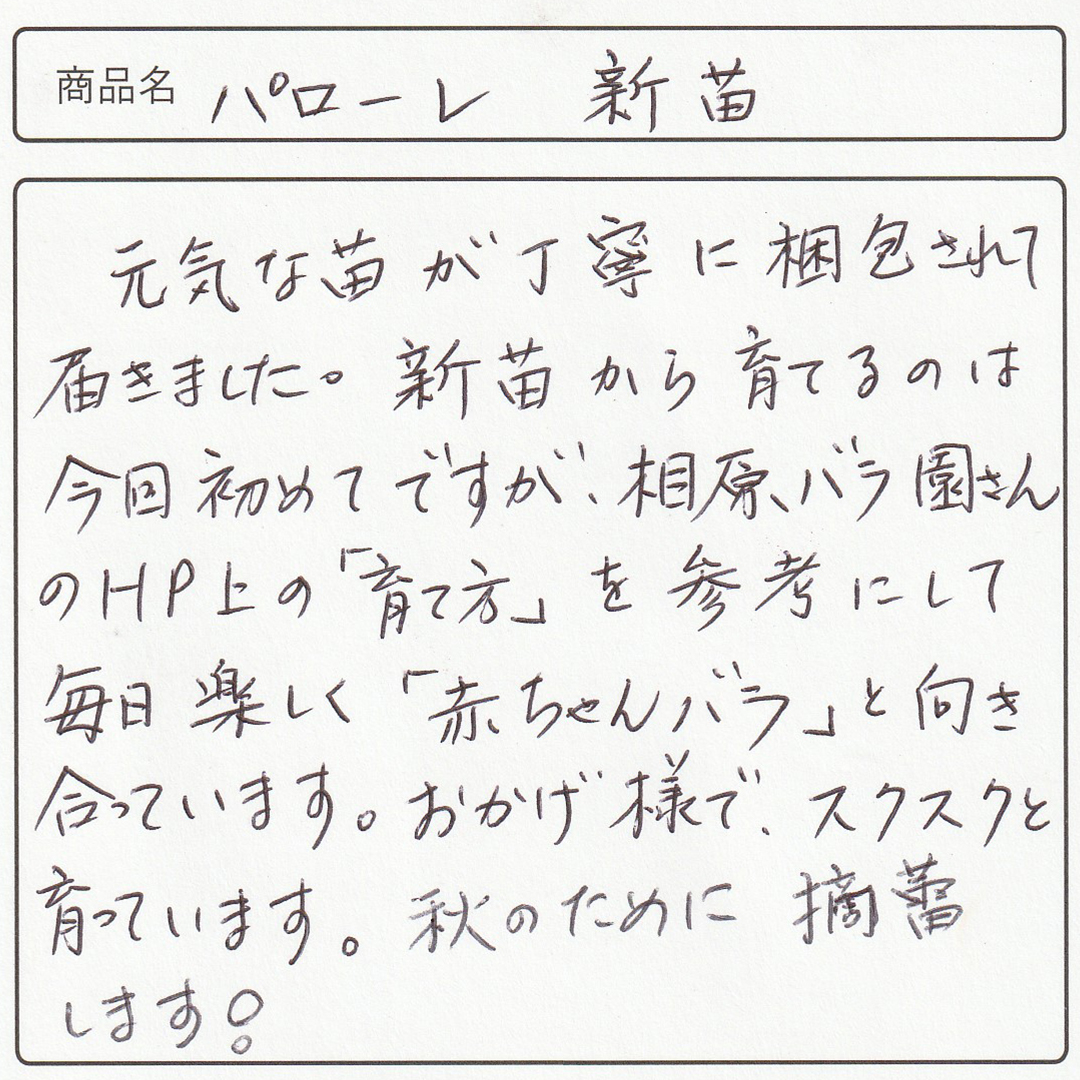 商品名 パローレ 新苗
元気な苗が丁寧に梱包されて
届きました。新苗から育てるのは
今回初めてですが、相原バラ園さん
のHP上の「育て方」を参考にして
毎日楽しく「赤ちゃんバラ」と向き
合っています。おかげ様で、スクスクと
育っています。秋のために摘蕾
します!